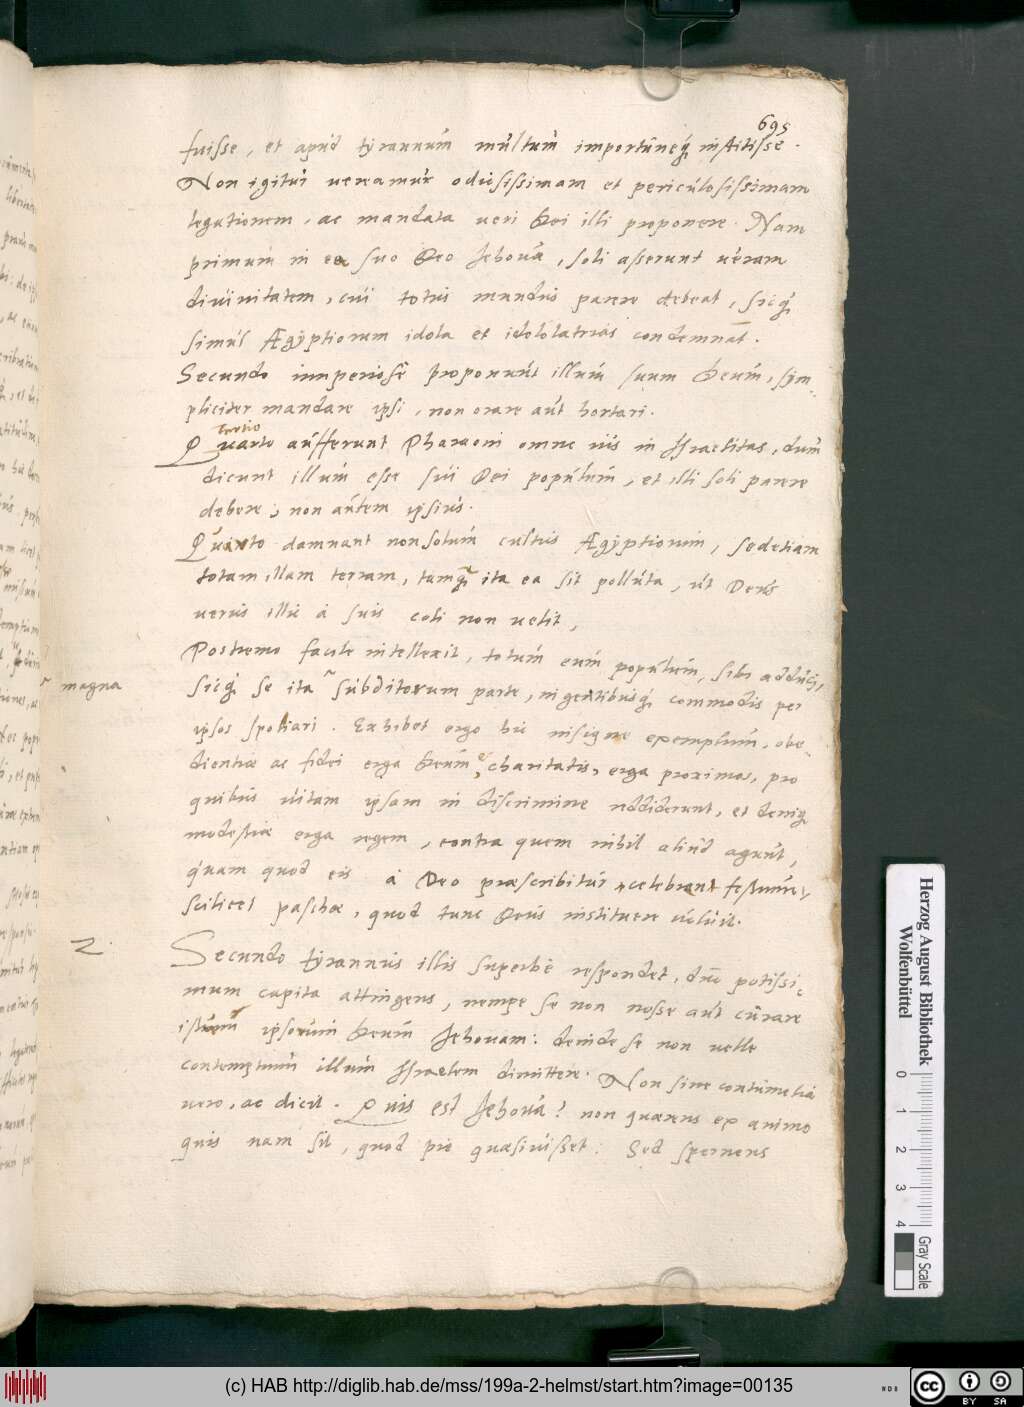 695
fuisse, et apud tyrannum multum importuneq́ institisse.
Non igitur vereamur odiosissimam et periculosissimam
legationem, ac mandata veri Dei illi proponere. Nam
primum in suo Deo Jehova, soli asserunt veram
divinitatem, cui totus mundus parere debeat, sicq́
simul Ægyptiorum idola et idololatrias condemnat.
Secundo imperiose proponunt illum suum Deum, sim-
pliciter mandare ipsi, non orare aut hortari.
tertio
Quarto aufferunt Pharaoni omne ius in Israelitas, dum
dicunt illum esse sui Dei populum, et illi soli parere
debere, non autem ipsius.
Quinto damnant non solum cultus Ægyptiorum, sed etiam
totam illam terram, tamq́ ita ea sit polluta, ut Deus
verus illic à suis coli non velit,
Postremo facile intellexit, totum eum populum, sibi adduci,
magna
sicq́ se ita subditorum parte, ingentibusq́ commodis per
ipsos spoliari. Exhibet ergo hic insigne exemplum, obe-
dientiæ ac fidei erga Deum et charitatis, erga proximos, pro
quibus vitam ipsam in discrimine addiderunt, et deniq́
modestiæ erga regem, contra quem nihil aliud agunt,
quam quod eis à Deo præscribitur, celebrent festum,
Scilicet paschæ, quod tunc Deus instituere voluit.
2.
Secundo tyrannus illis superbè respondet, dum potissi-
mum capita attingens, nempe se non nosse aut curare
istum ipsorum Deum Jehovam: deinde se non velle
contemptum illum Israelem dimittere. Non sine contumelia
vero, ac dicit. Quis est Jehova? non quærens ex animo
quis nam sit, quod pie quæsivisset: Sed spernens
Herzog August Bibliothek
Wolfenbüttel
0 1 2 3 4
Gray Scale
(c) HAB http://diglib.hab.de/mss/199a-2-helmst/start.htm?image=00135
cc BY SA